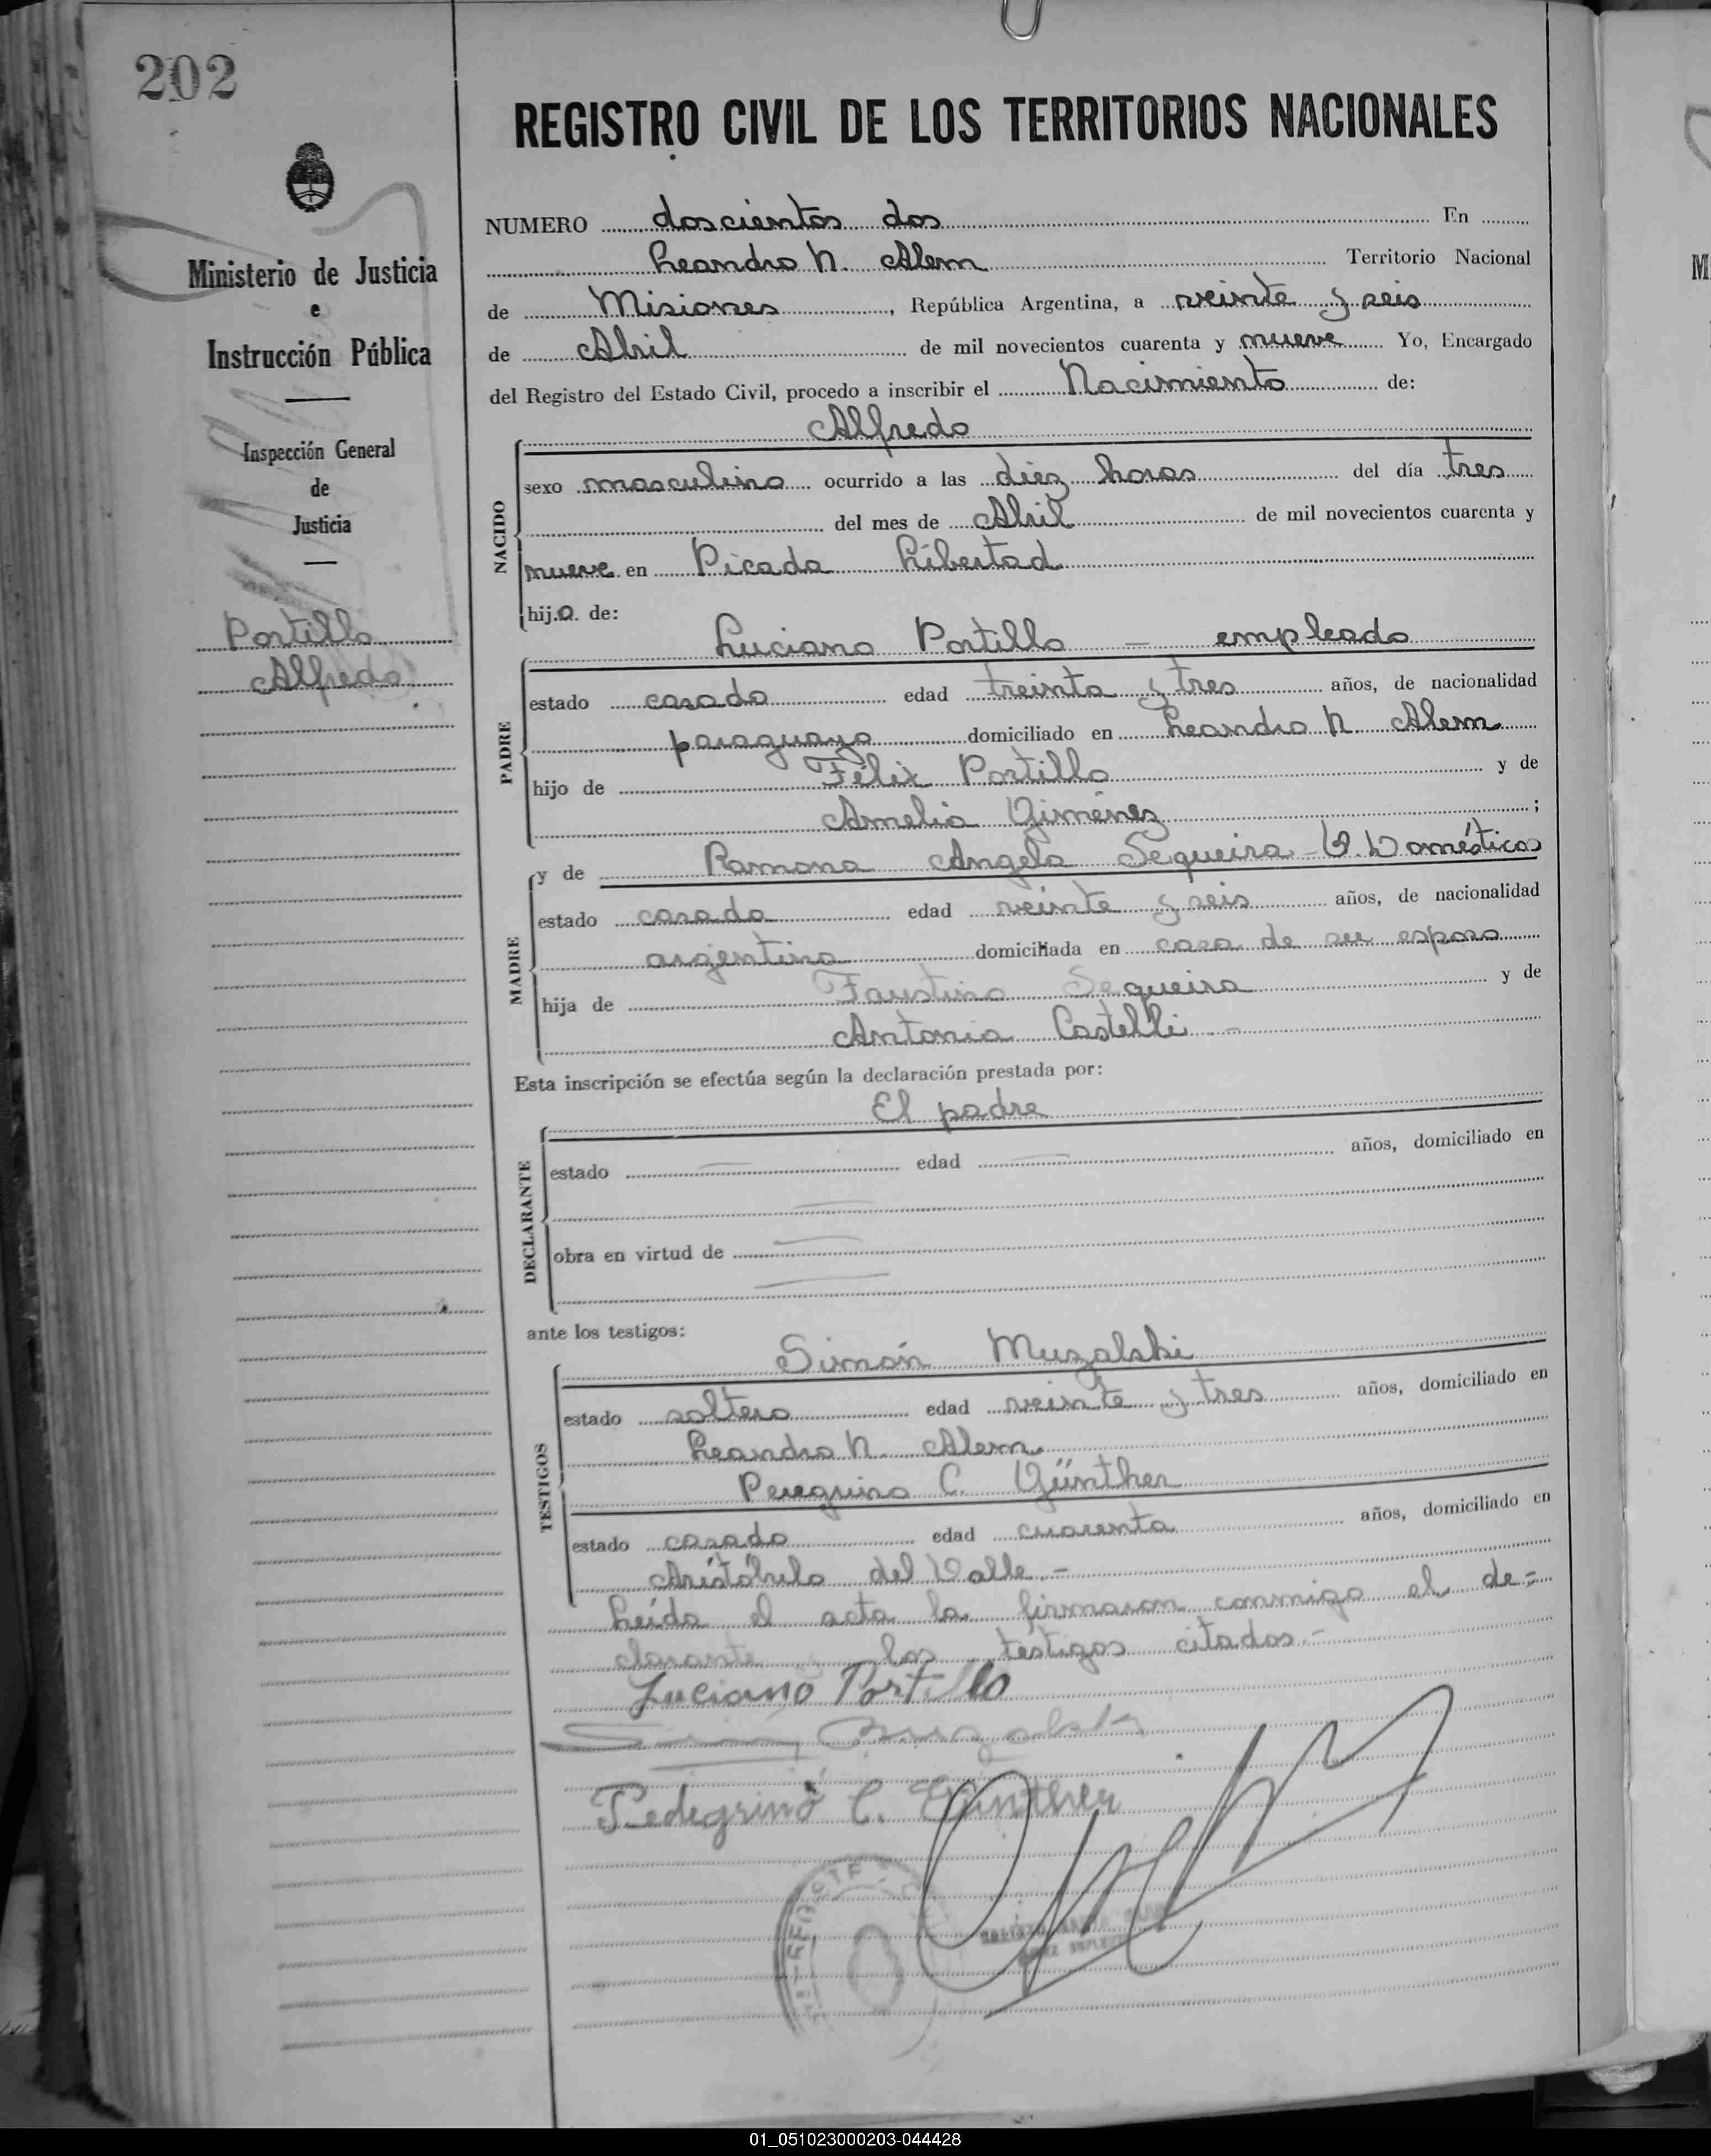 202
REGISTRO CIVIL DE LOS TERRITORIOS NACIONALES
Ministerio de Justicia
e
Instrucción Pública
Inspección General
de
Justicia
Portillo
Alfredo
NUMERO doscientos dos En
Leandro N. Alem Territorio Nacional
de Misiones, República Argentina, a veinte y seis
de Abril de mil novecientos cuarenta y nueve Yo, Encargado
del Registro del Estado Civil, procedo a inscribir el Nacimiento de:
NACIDO
Alfredo
sexo masculino ocurrido a las diez horas del día tres
del mes de Abril de mil novecientos cuarenta y
nueve en Picada Libertad
hijo de:
PADRE
Luciano Portillo - empleado
estado casado edad treinta y tres años, de nacionalidad
paraguayo domiciliado en Leandro N Alem
hijo de Félix Portillo y de
Amelia Giménez ;
MADRE
y de Ramona Angela Sequeira - Q. Domésticos
estado casada edad veinte y seis años, de nacionalidad
argentina domiciliada en casa de su esposo
hija de Faustino Sequeira y de
Antonia Castelli -
Esta inscripción se efectúa según la declaración prestada por:
DECLARANTE
El padre
estado edad años, domiciliado en
obra en virtud de
ante los testigos:
TESTIGOS
Simón Muzalski
estado soltero edad veinte y tres años, domiciliado en
Leandro N. Alem.
Peregrino C. Günther
estado casado edad cuarenta años, domiciliado en
Aristóbulo del Valle.-
Leída el acta la firmaron conmigo el de=
clarante y los testigos citados.-
Luciano Portillo
Muzalski
Pedegrino C. Günther
01_051023000203-044428